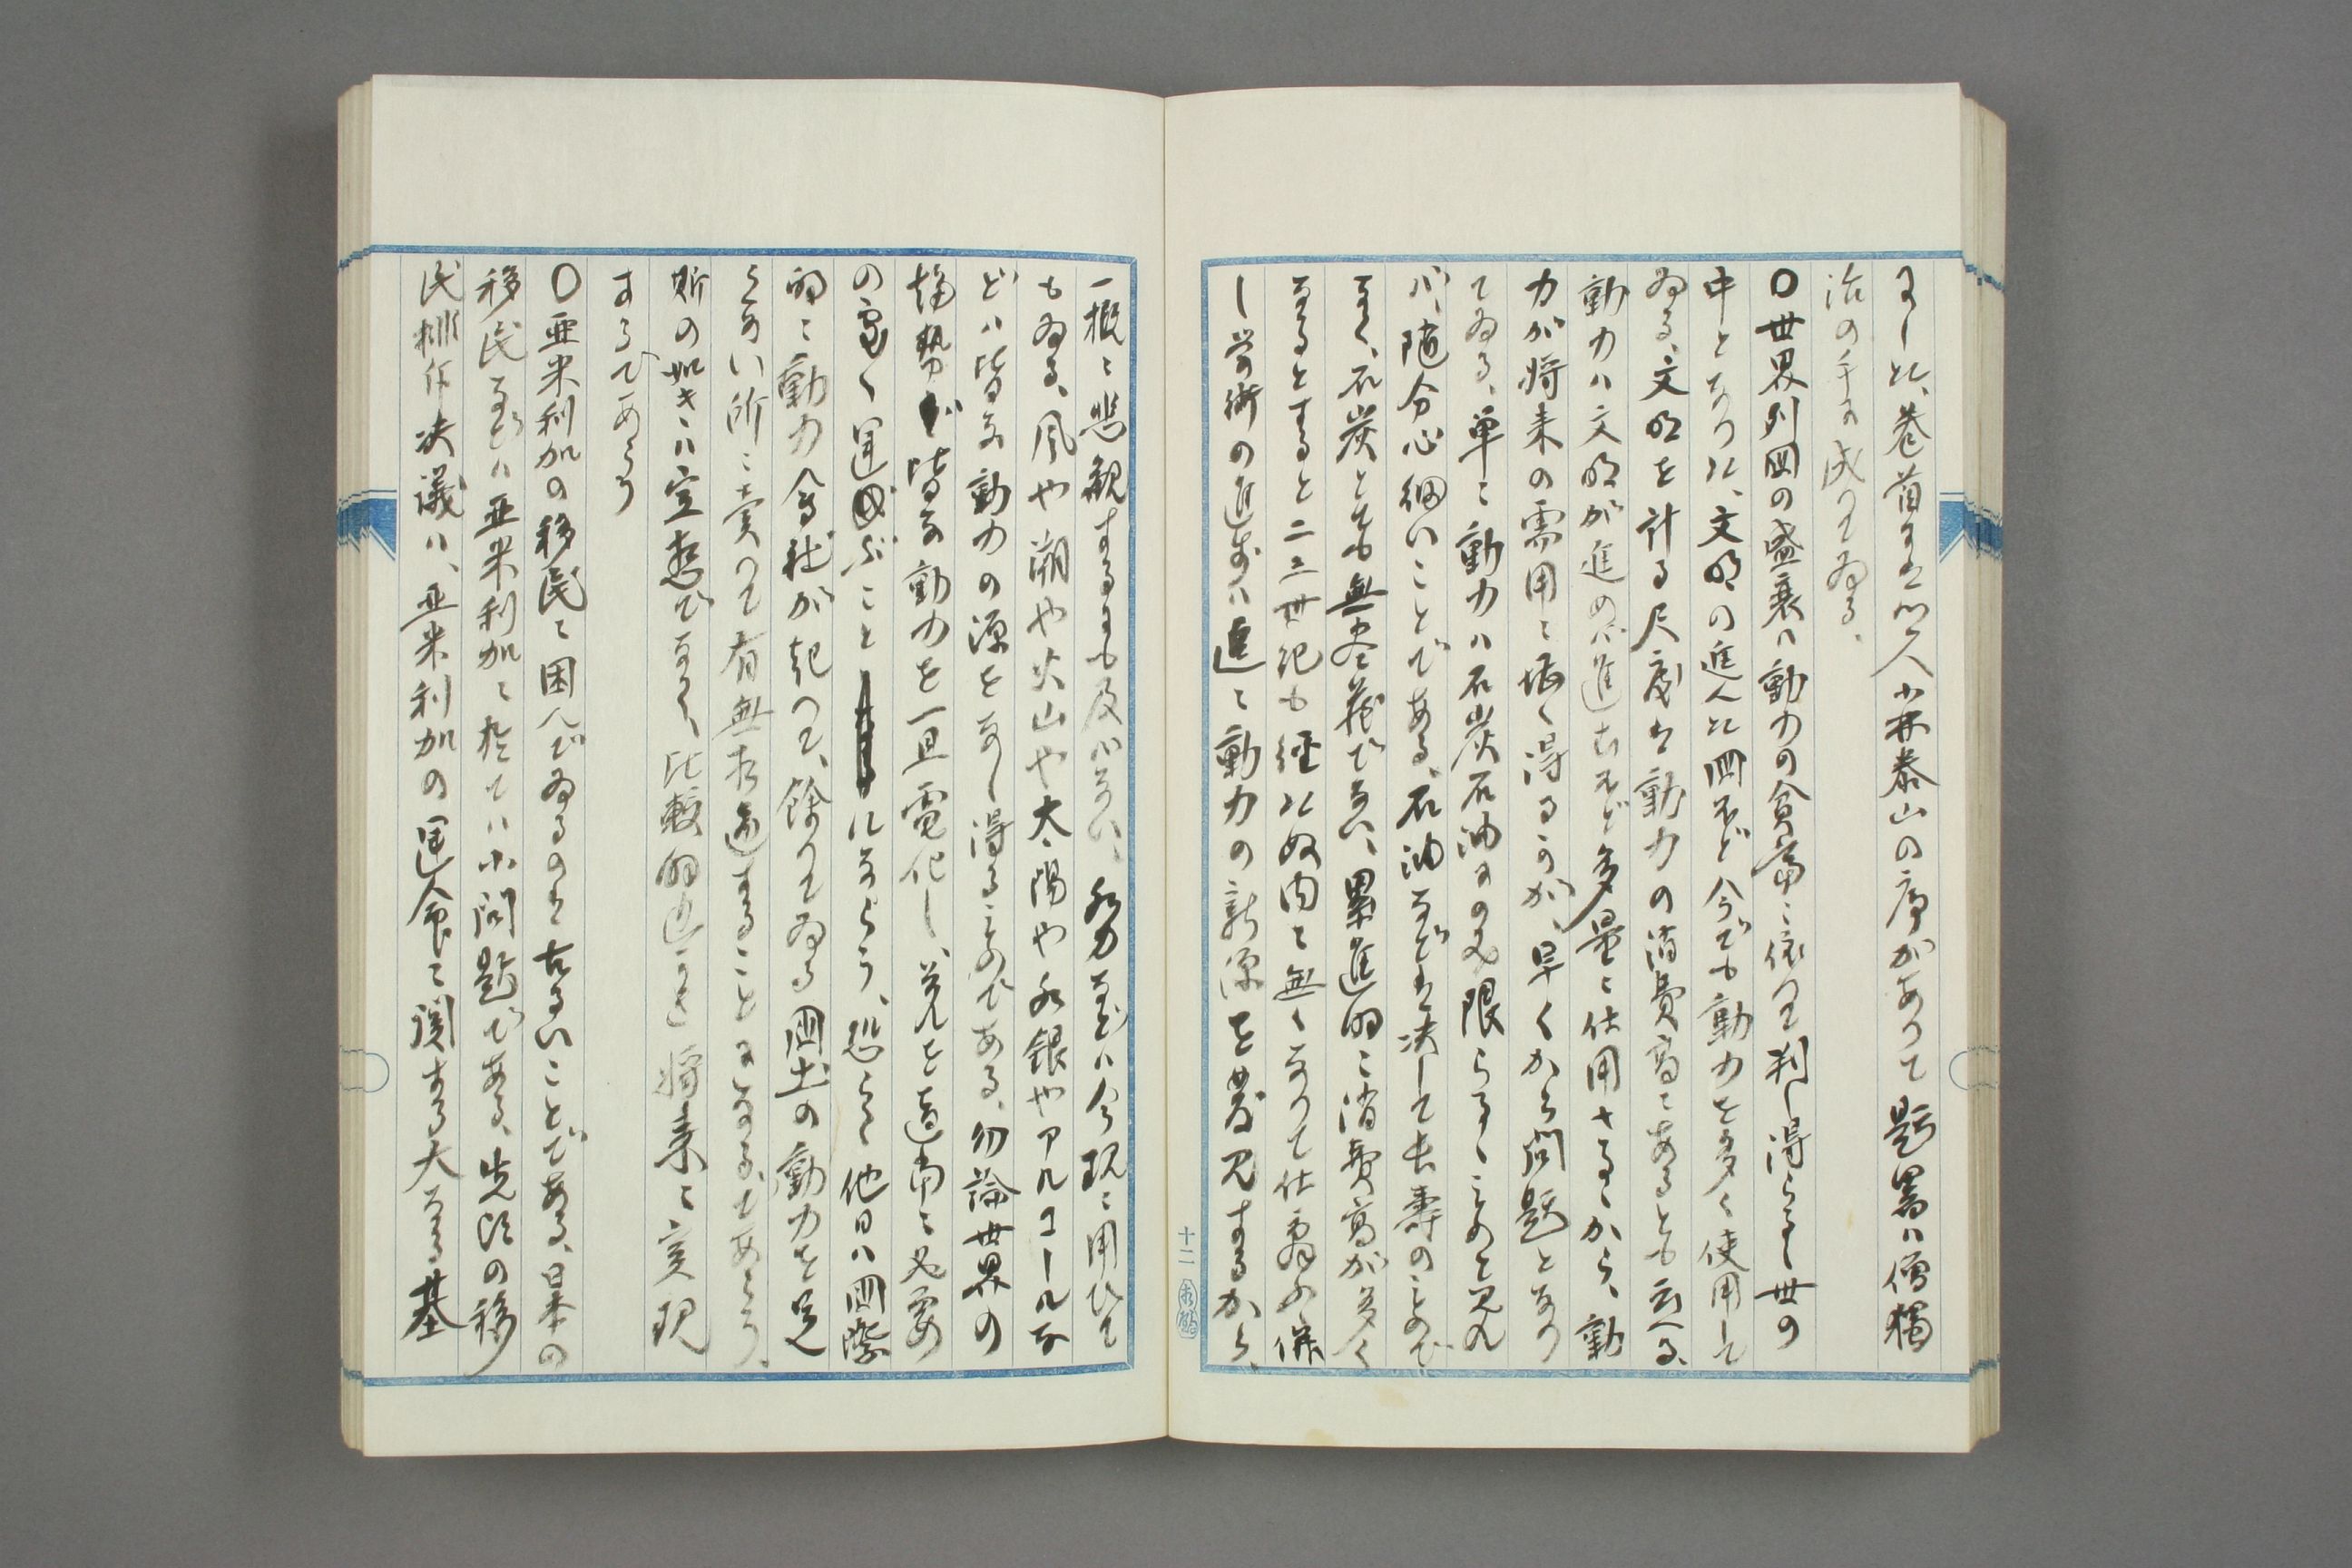 にし比、巻首には八人小林泰山の序があつて題署は僧獨
治の手に成つてゐる、
〇世界列国の盛衰は動力の貧富に依つて判し得らるゝ世の
中となつた、文明の進んだ国ほど今でも動力を多く使用して
ゐる、文明を計る尺度は動力の消費高にあるとも云へる、
動力は文明が進めば進むほど多量に使用さるゝから、動
力が将来の需用に堪へ得るかが、早くから問題となつ
てゐる、単に動力は石炭石油にのみ限らるゝものと見れ
ば、随分心細いことである、石油などは決して長寿のもので
なく、石炭とても無尽蔵でない、累進的に消費高が多く
なるとすると二三世紀も経たぬ内に無くなつて仕舞ふ、併
し学術の進歩は直に動力の新源を発見するから、
一概に悲観するにも及ばない、水力などは今現に用ひて
もゐる、風や潮や火山や太陽や水銀やアルコールな
どは皆な動力の源をなし得るものである、勿論世界の
情勢が皆な動力を一旦電化し、荒を適当に必要
の電く運ぶことになららう、恐らく他日は国際
的に動力会社が起つて、餘つてゐる国土の動力を足
らない所に売つて有無相通することになるであらう、
斯の如きは空想でなく、比較的近き将来に実現
するであらう
〇亜米利加の移民に困んでゐるのは古るいことである、日本の
移民などは亜米利加に於ては小問題である、先頃の移
民排斥決議は、亜米利加の運命に関する大なる基
十二